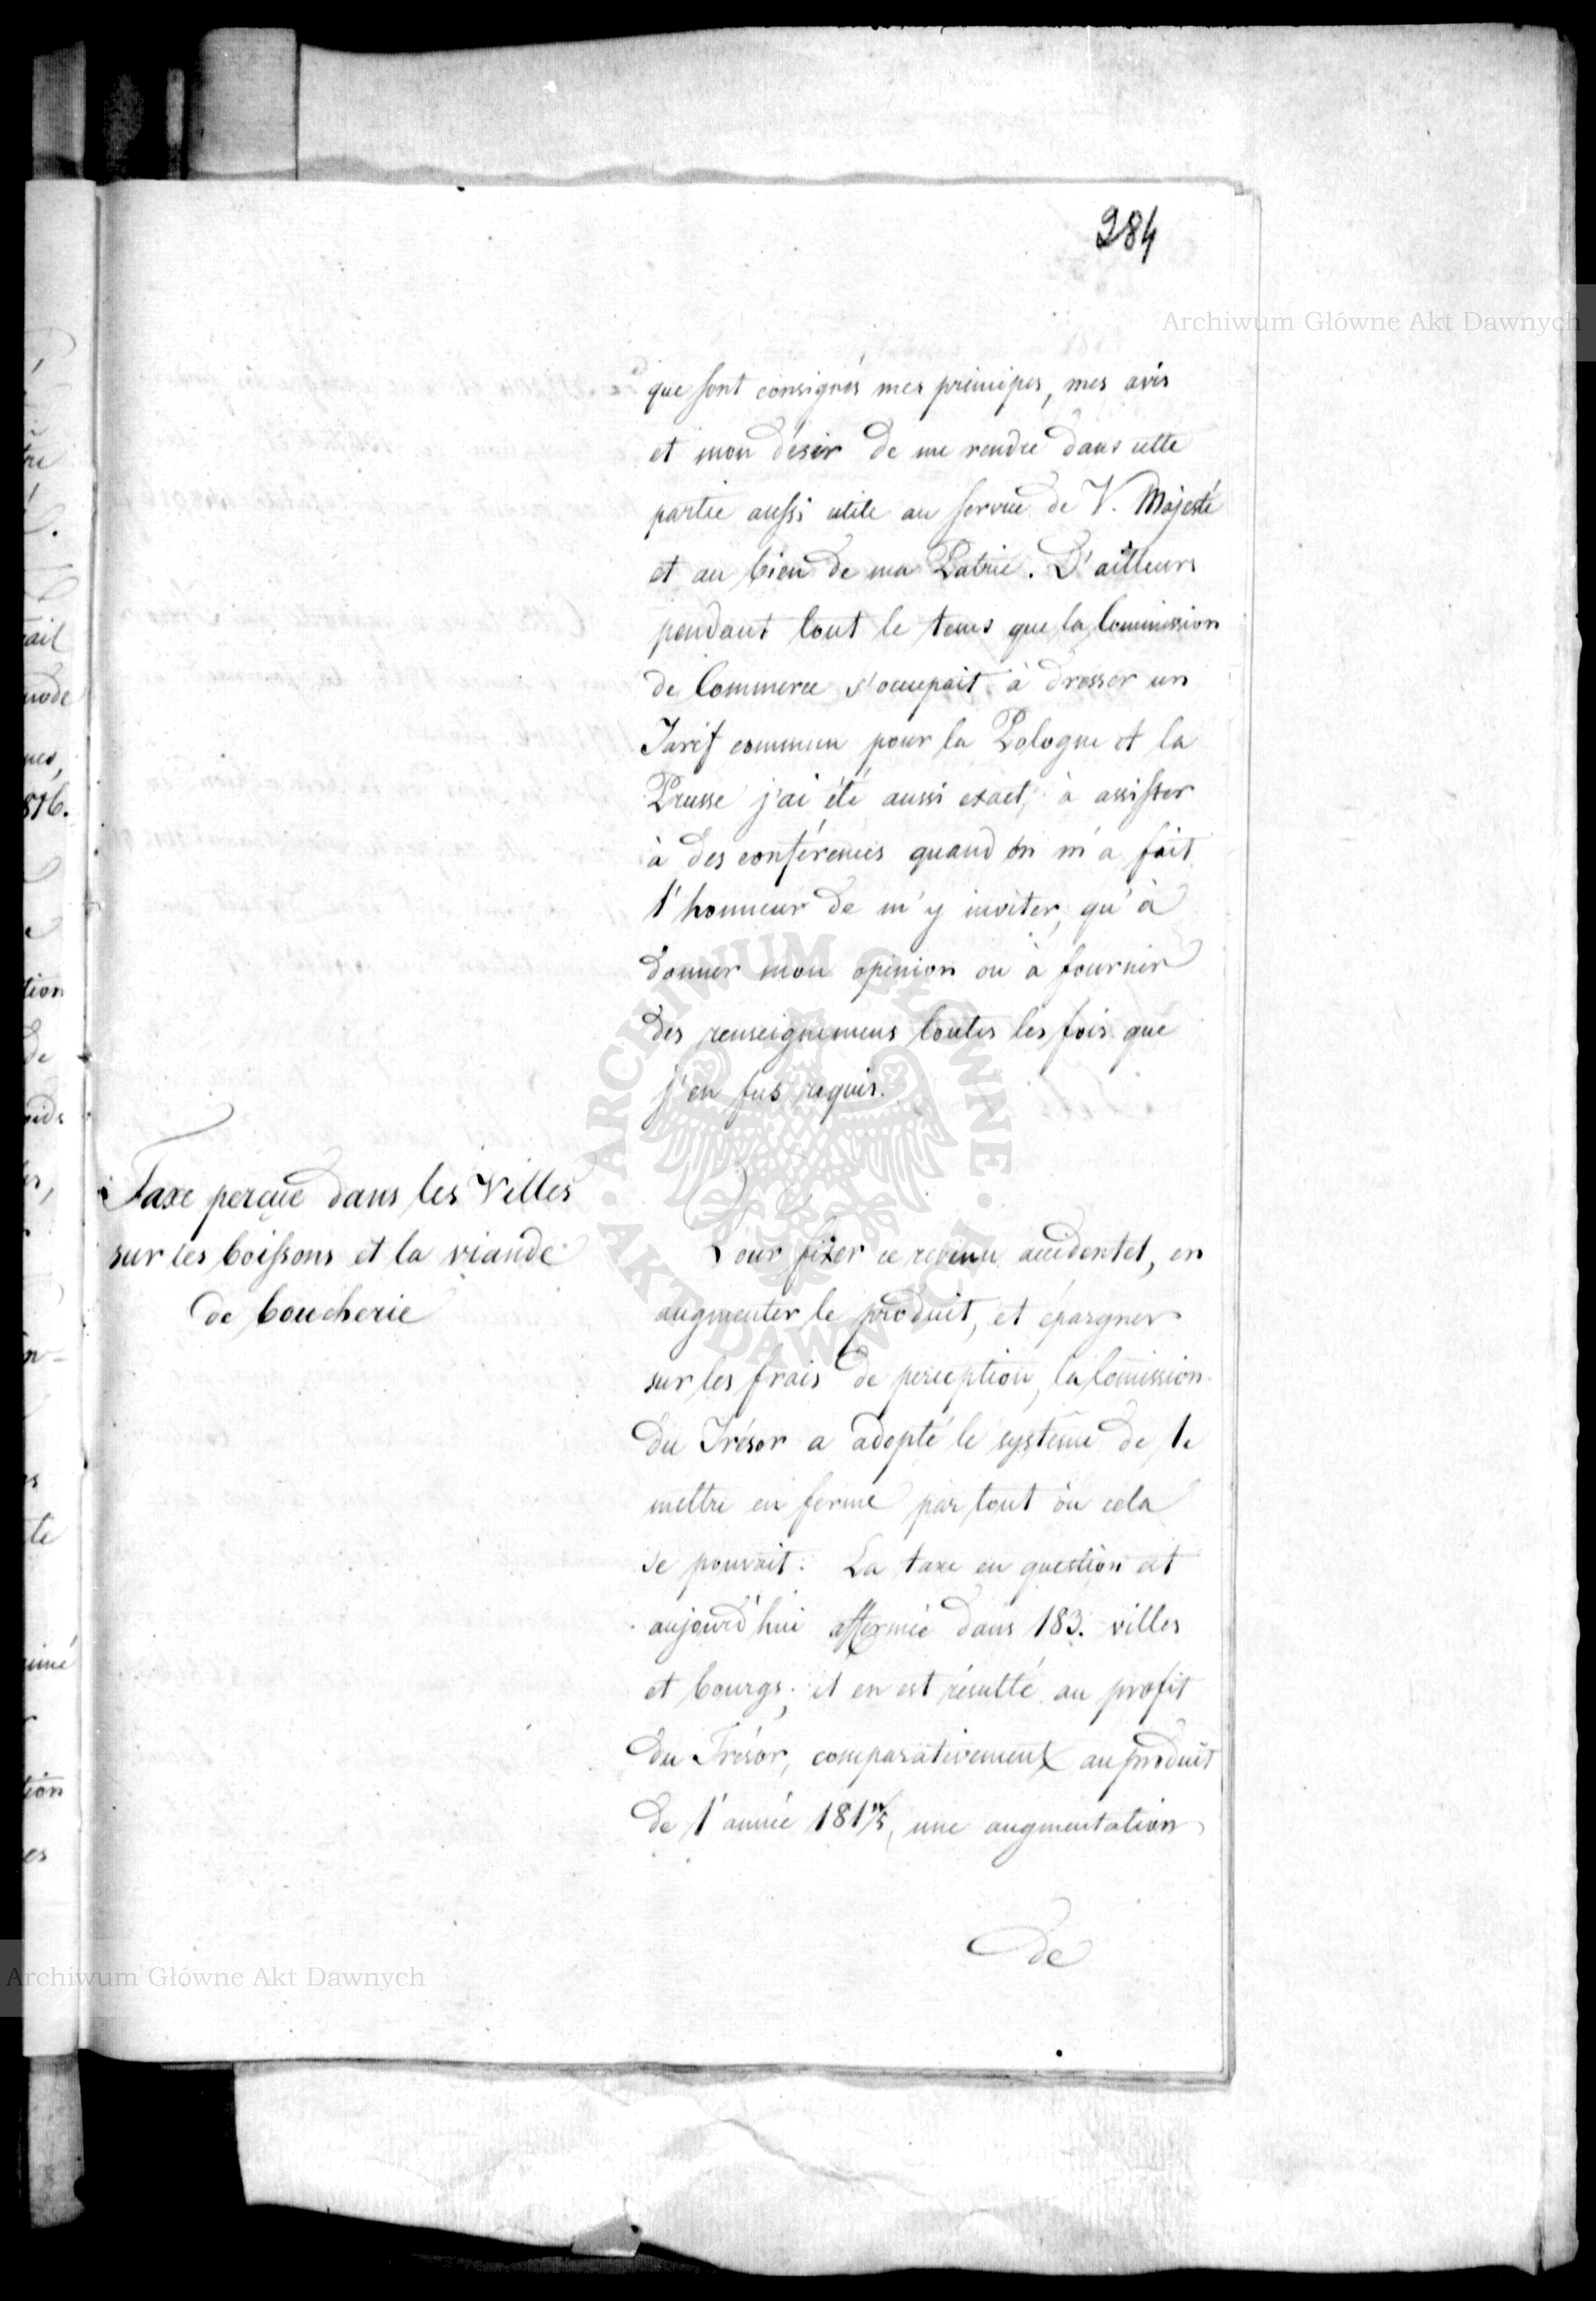 284
Archiwum Główne Akt Dawnych
que sont consignés mes principes, mes avis
et mon désir de me rendre dans cette
partie aussi utile au service de V. Majesté
et au bien de ma Patrie. D'ailleurs
pendant tout le tems que la Commission
de Commerce s'occupait à dresser un
Tarif commun pour la Pologne et la
Prusse j'ai été aussi exact, à assister
à des conférences quand on m'a fait
l'honneur de m'y inviter, qu'à
donner mon opinion ou à fournir
des renseignemens toutes les fois que
j'en fus requis.
Taxe perçue dans les Villes
sur les boissons et la viande
de boucherie
Pour fixer ce revenu accidentel, en
augmenter le produit, et épargner
sur les frais de perception, la Comission
du Trésor a adopté le systême de le
mettre en ferme par tout où cela
se pouvait. La taxe en question est
aujourd'hui affermée dans 183. villes
et bourgs; il en est résulté au profit
du Trésor, comparativement au produit
de l'année 181⁴/₅, une augmentation
de
Archiwum Główne Akt Dawnych
ARCHIWUM GŁÓWNE
AKT DAWNYCH